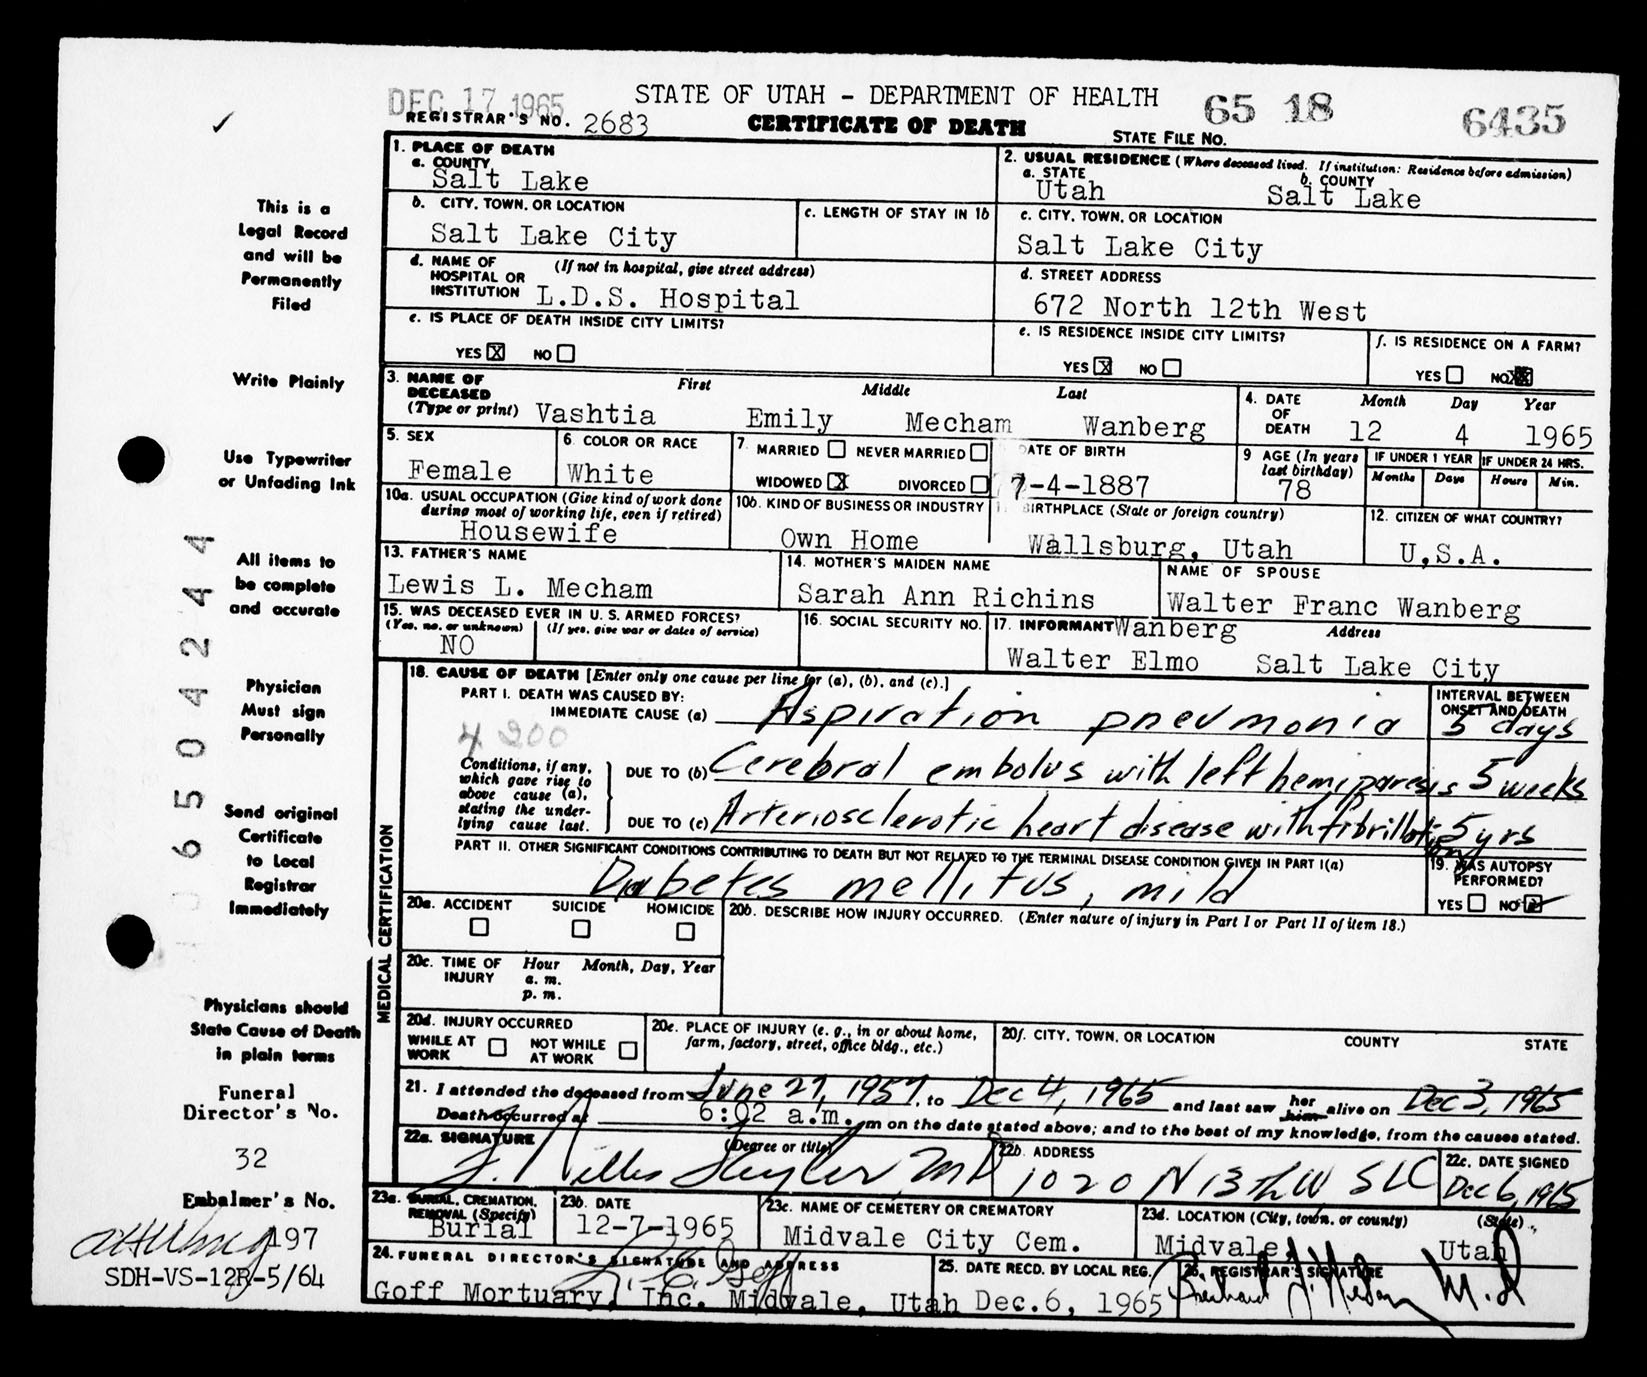 DEC 17 1965
STATE OF UTAH - DEPARTMENT OF HEALTH
65 18 6435
REGISTRAR'S NO. 2683
CERTIFICATE OF DEATH
STATE FILE NO.
1. PLACE OF DEATH
a. COUNTY
Salt Lake
2. USUAL RESIDENCE (Where deceased lived. If institution: Residence before admission)
a. STATE b. COUNTY
Utah Salt Lake
b. CITY, TOWN, OR LOCATION
Salt Lake City
c. LENGTH OF STAY IN 1b
c. CITY, TOWN, OR LOCATION
Salt Lake City
d. NAME OF HOSPITAL OR INSTITUTION (If not in hospital, give street address)
L.D.S. Hospital
d. STREET ADDRESS
672 North 12th West
e. IS PLACE OF DEATH INSIDE CITY LIMITS?
YES X NO
e. IS RESIDENCE INSIDE CITY LIMITS?
YES X NO
f. IS RESIDENCE ON A FARM?
YES NO X
3. NAME OF DECEASED (Type or print)
First Middle Last
Vashtia Emily Mecham Wanberg
4. DATE OF DEATH
Month Day Year
12 4 1965
5. SEX
Female
6. COLOR OR RACE
White
7. MARRIED NEVER MARRIED
WIDOWED X DIVORCED
DATE OF BIRTH
7-4-1887
9 AGE (In years last birthday)
78
IF UNDER 1 YEAR
Months Days
IF UNDER 24 HRS.
Hours Min.
10a. USUAL OCCUPATION (Give kind of work done during most of working life, even if retired)
Housewife
10b. KIND OF BUSINESS OR INDUSTRY
Own Home
BIRTHPLACE (State or foreign country)
Wallsburg, Utah
12. CITIZEN OF WHAT COUNTRY?
U.S.A.
13. FATHER'S NAME
Lewis L. Mecham
14. MOTHER'S MAIDEN NAME
Sarah Ann Richins
NAME OF SPOUSE
Walter Franc Wanberg
15. WAS DECEASED EVER IN U. S. ARMED FORCES?
(Yes, no, or unknown) (If yes, give war or dates of service)
NO
16. SOCIAL SECURITY NO.
17. INFORMANT Wanberg Address
Walter Elmo Salt Lake City
MEDICAL CERTIFICATION
18. CAUSE OF DEATH [Enter only one cause per line for (a), (b), and (c).]
PART I. DEATH WAS CAUSED BY:
IMMEDIATE CAUSE (a) Aspiration pneumonia
INTERVAL BETWEEN ONSET AND DEATH
5 days
4 200
Conditions, if any, which gave rise to above cause (a), stating the underlying cause last.
DUE TO (b) Cerebral embolus with left hemiparesis 5 weeks
DUE TO (c) Arteriosclerotic heart disease with fibrillation 5 yrs
PART II. OTHER SIGNIFICANT CONDITIONS CONTRIBUTING TO DEATH BUT NOT RELATED TO THE TERMINAL DISEASE CONDITION GIVEN IN PART I(a)
Diabetes mellitus, mild
19. WAS AUTOPSY PERFORMED?
YES NO
20a. ACCIDENT SUICIDE HOMICIDE
20b. DESCRIBE HOW INJURY OCCURRED. (Enter nature of injury in Part I or Part II of item 18.)
20c. TIME OF INJURY Hour Month, Day, Year
a. m.
p. m.
20d. INJURY OCCURRED
WHILE AT WORK NOT WHILE AT WORK
20e. PLACE OF INJURY (e. g., in or about home, farm, factory, street, office bldg., etc.)
20f. CITY, TOWN, OR LOCATION COUNTY STATE
21. I attended the deceased from June 27, 1957, to Dec 4, 1965 and last saw her him alive on Dec 3, 1965
Death occurred at 6:02 a.m. m on the date stated above; and to the best of my knowledge, from the causes stated.
22a. SIGNATURE (Degree or title)
MD
22b. ADDRESS
1020 N 13th W SLC
22c. DATE SIGNED
Dec 6, 1965
23a. BURIAL, CREMATION, REMOVAL (Specify)
Burial
23b. DATE
12-7-1965
23c. NAME OF CEMETERY OR CREMATORY
Midvale City Cem.
23d. LOCATION (City, town, or county) (State)
Midvale, Utah
24. FUNERAL DIRECTOR'S SIGNATURE AND ADDRESS
Goff Mortuary, Inc. Midvale, Utah
25. DATE RECD. BY LOCAL REG.
Dec. 6, 1965
26. REGISTRAR'S SIGNATURE
M.D
This is a
Legal Record
and will be
Permanently
Filed
Write Plainly
Use Typewriter
or Unfading Ink
All items to
be complete
and accurate
Physician
Must sign
Personally
Send original
Certificate
to Local
Registrar
Immediately
Physicians should
State Cause of Death
in plain terms
Funeral
Director's No.
32
Embalmer's No.
197
SDH-VS-12R-5/64
650 4244